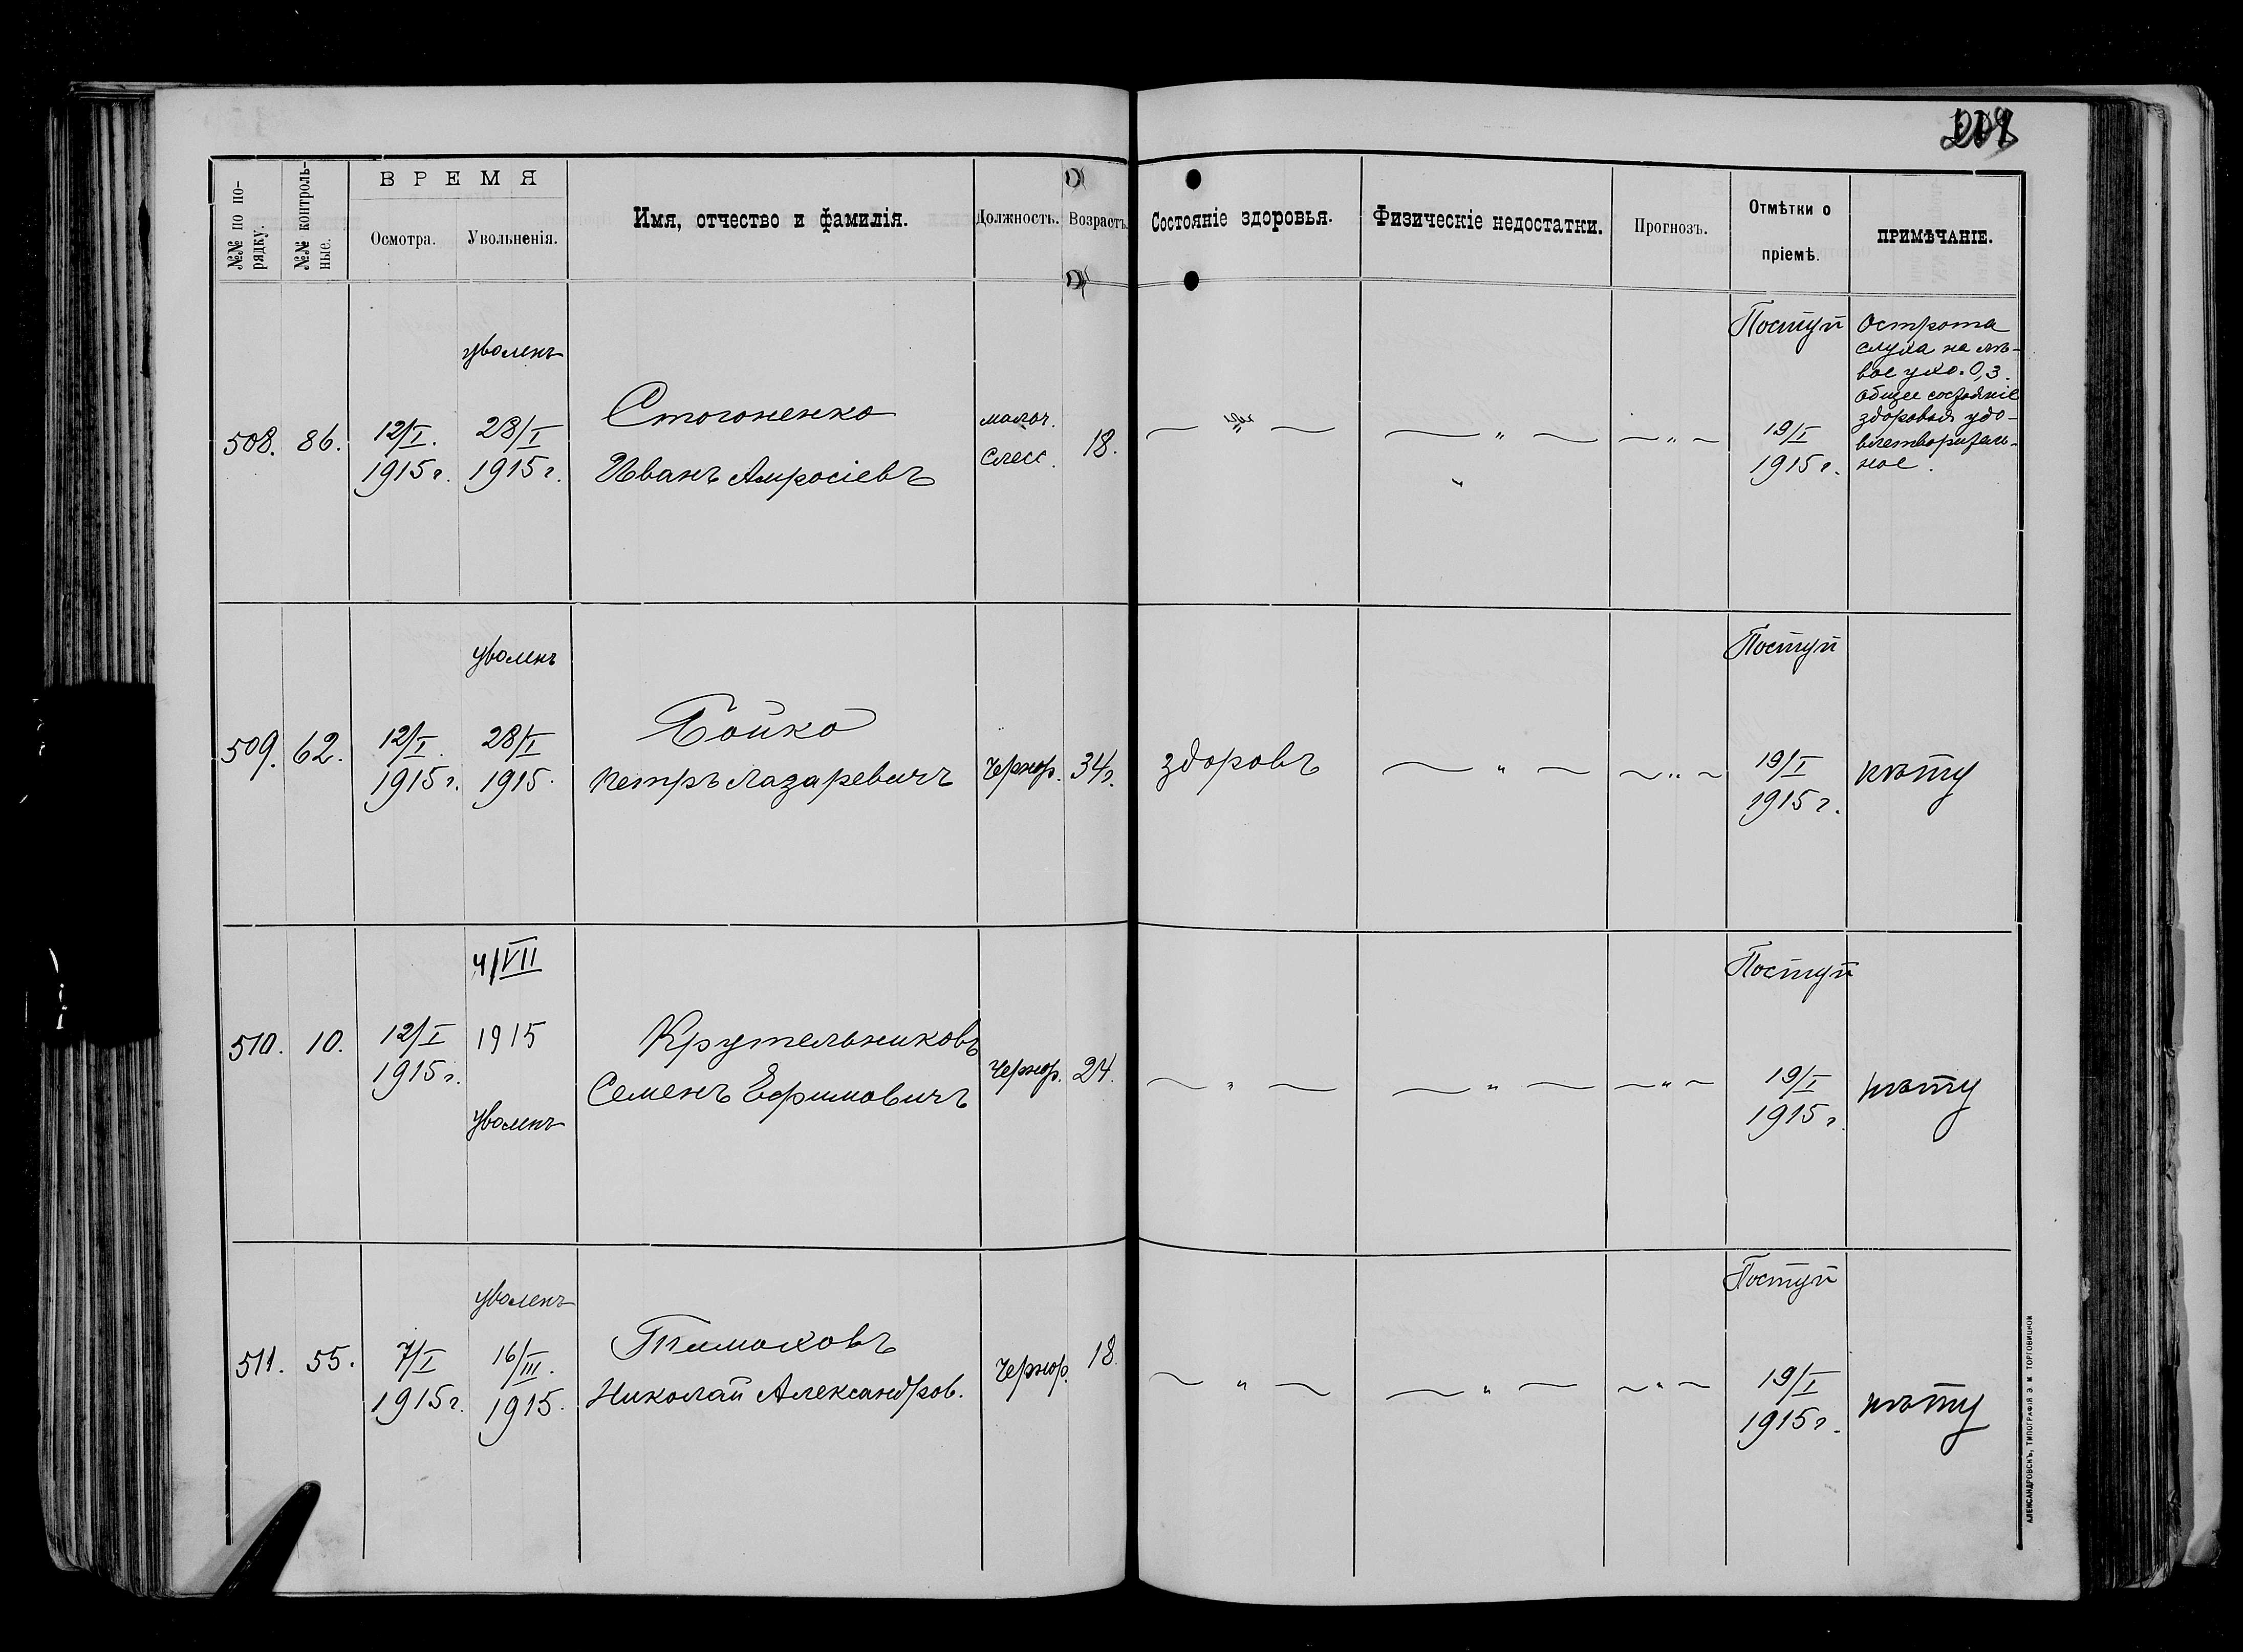 №№ по по-
рядку.
№№ контроль-
ные.
ВРЕМЯ
Осмотра.
Увольненія.
Имя, отчество и фамилія.
Должность.
Возрастъ.
Состояніе здоровья.
Физическіе недостатки.
Прогнозъ.
Отмѣтки о
пріемѣ.
ПРИМѢЧАНІЕ.
508.
86.
12/I.
1915 г.
уволенъ
28/I
1915 г.
Стогоненко
Иванъ Амросіевъ
малоч.
Слес.
18.
— " —
— " —
"
— " —
Поступ
19/I
1915 г.
Острота
слуха на лѣ-
вое ухо. 0,3.
Общее состояніе
здоровья удо-
влетворитель-
ное.
509.
62.
12/I.
1915 г.
уволенъ
28/I
1915.
Бойко
Петръ Лазаревичъ
Чернор.
34 г.
здоровъ
— " —
— " —
Поступ
19/I
1915 г.
нѣту
510.
10.
12/I
1915 г.
4/VII
1915
уволенъ
Крутельниковъ
Семенъ Ефимовичъ
Чернор.
24.
— " —
— " —
— " —
Поступ
19/I
1915 г.
нѣту
511.
55.
7/I
1915 г.
уволенъ
16/III.
1915.
Тимоховъ
Николай Александров.
Чернор.
18.
— " —
— " —
— " —
Поступ
19/I
1915 г.
нѣту
АЛЕКСАНДРОВСКЪ, ТИПОГРАФІЯ Э. М. ТОРГОВИЦКОЙ